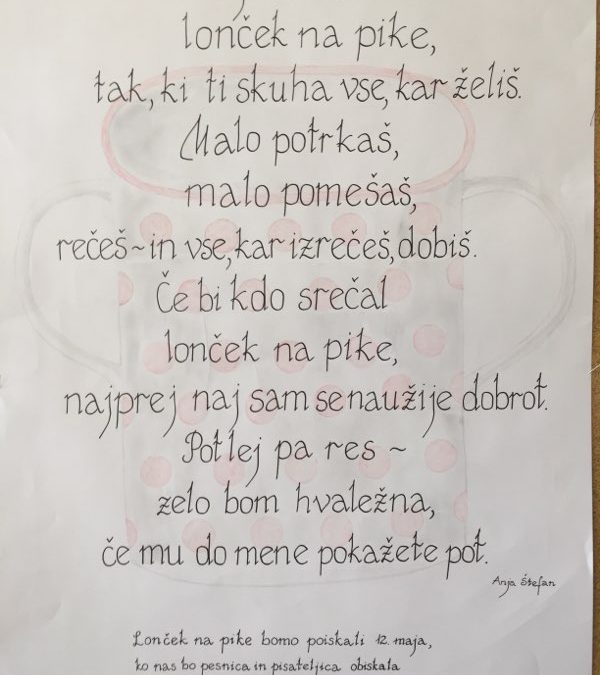 lonček na pike,
tak, ki ti skuha vse, kar želiš.
Malo potrkaš,
malo pomešaš,
rečeš ~ in vse, kar izrečeš, dobiš.
Če bi kdo srečal
lonček na pike,
najprej naj sam se naužije dobrot.
Potlej pa res ~
zelo bom hvaležna,
če mu do mene pokažete pot.
Anja Štefan
Lonček na pike bomo poiskali 12. maja,
ko nas bo pesnica in pisateljica obiskala